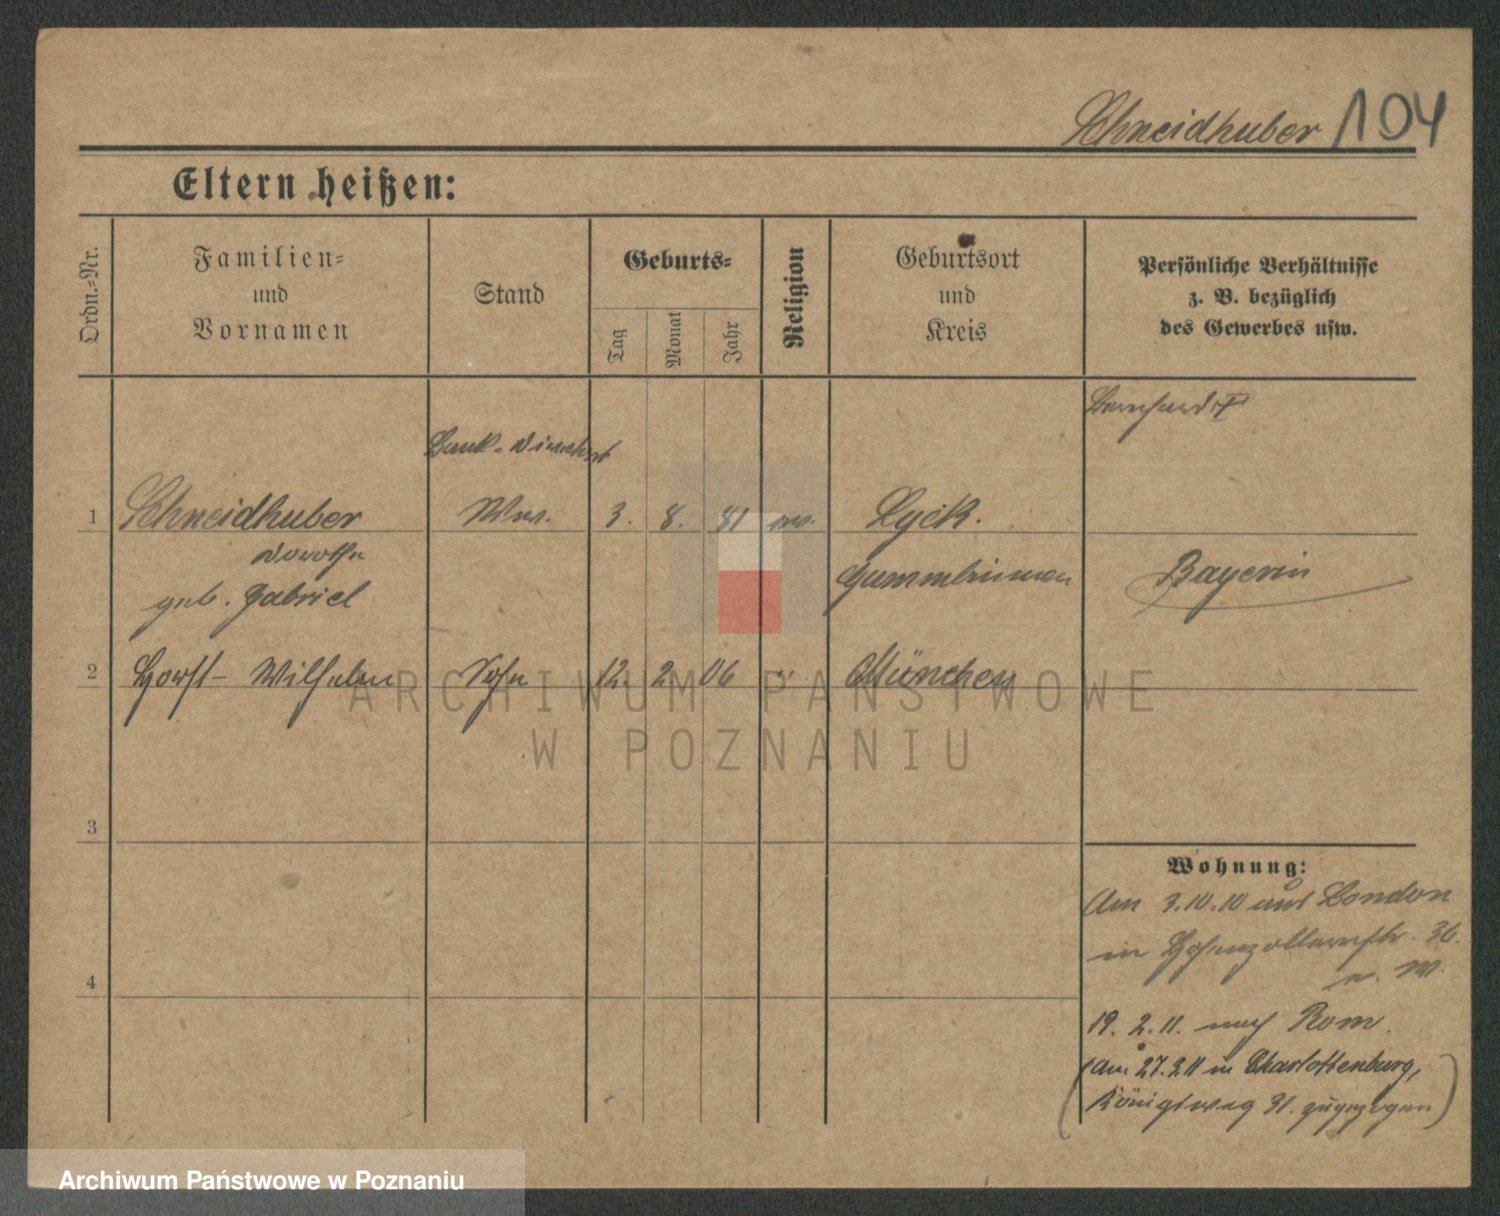 Schneidhuber 104
Eltern heißen:
Ordn.-Nr.
Familien-
und
Vornamen
Stand
Geburts-
Tag
Monat
Jahr
Religion
Geburtsort
und
Kreis
Persönliche Verhältnisse
z. B. bezüglich
des Gewerbes usw.
Bank-Direktor
1 Schneidhuber Ww. 3. 8. 81 Lyck.
Dorothe
geb. Gabriel
Gumminnen
Bayerin
2 Horst-Wilhelm Sohn 12. 2. 06 " München
3
4
Wohnung:
Am 3.10.10 aus London
in Hohenzollernstr. 36.
19. 2. 11. nach Rom.
(am 27.2.11 in Charlottenburg,
Königsweg 31. zugezogen)
ARCHIWUM PAŃSTWOWE
W POZNANIU
Archiwum Państwowe w Poznaniu